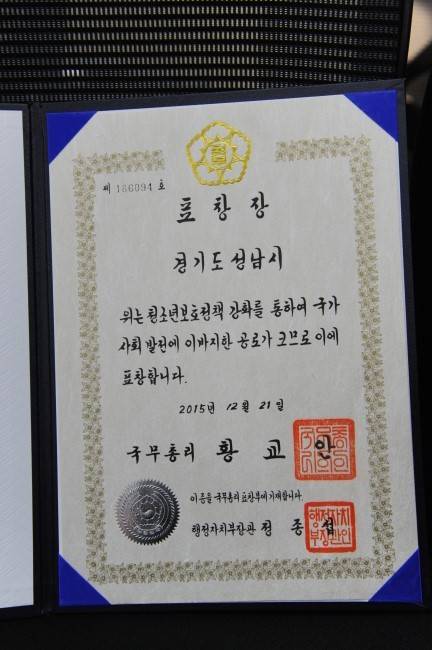 제 186094 호
표 창 장
경기도 성남시
위는 청소년보호정책 강화를 통하여 국가
사회 발전에 이바지한 공로가 크므로 이에
표창합니다.
2015년 12월 21일
국무총리 황 교 안
이 증을 국무총리 표창부에 기재합니다.
행정자치부장관 정 종 섭
행정자치
부장관인